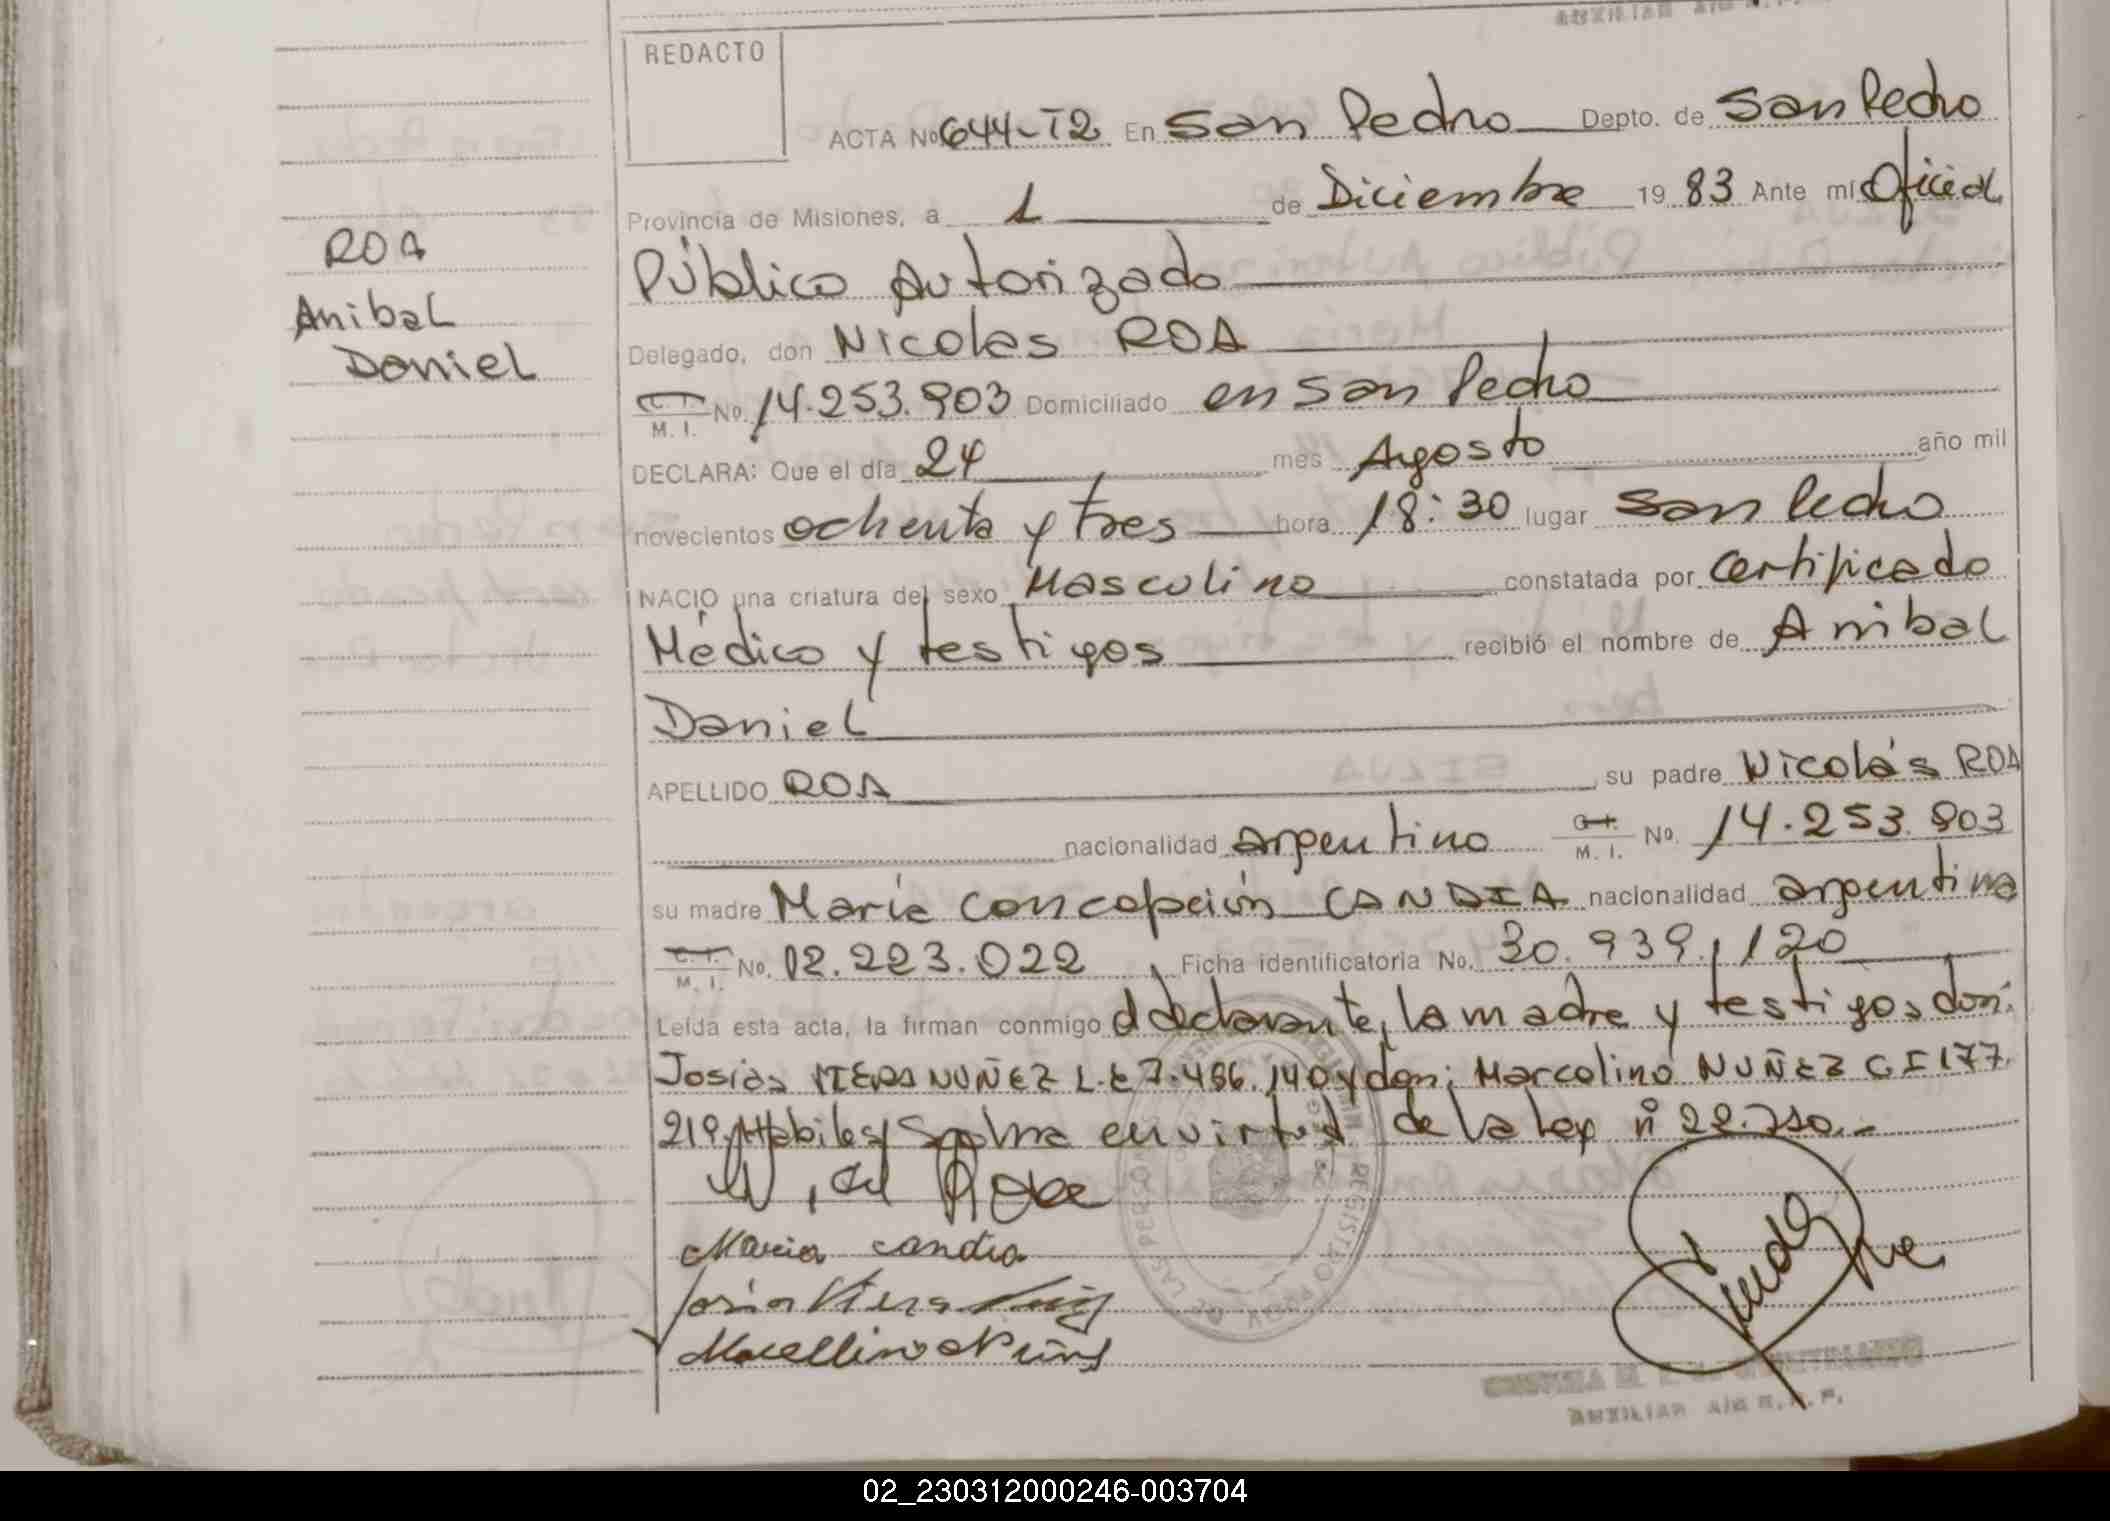 REDACTO
ACTA No 644-T2 En San Pedro Depto. de San Pedro
Provincia de Misiones, a 1 de Diciembre 19 83 Ante mí Oficial
Público Autorizado
ROA
Anibal
Daniel
Delegado, don Nicolas ROA
C. I.
M. I. No. 14.253.903 Domiciliado en San Pedro
DECLARA: Que el día 24 mes Agosto año mil
novecientos ochenta y tres hora 18:30 lugar San Pedro
NACIO una criatura del sexo Masculino constatada por Certificado
Médico y testigos recibió el nombre de Anibal
Daniel
APELLIDO ROA su padre Nicolás ROA
nacionalidad argentino C. I. M. I. No. 14.253.903
su madre María Concepción CANDIA nacionalidad argentina
C. I. M. I. No. 12.223.022 Ficha identificatoria No. 30.939.120
Leída esta acta, la firman conmigo el declarante, la madre y testigos don:
Josias NUÑEZ L.E 7.486.140 y don: Marcolino NUÑEZ C I 177.
219 Habiles en virtud de la Ley nº
Maria Candia
AUXILIAR
02_230312000246-003704